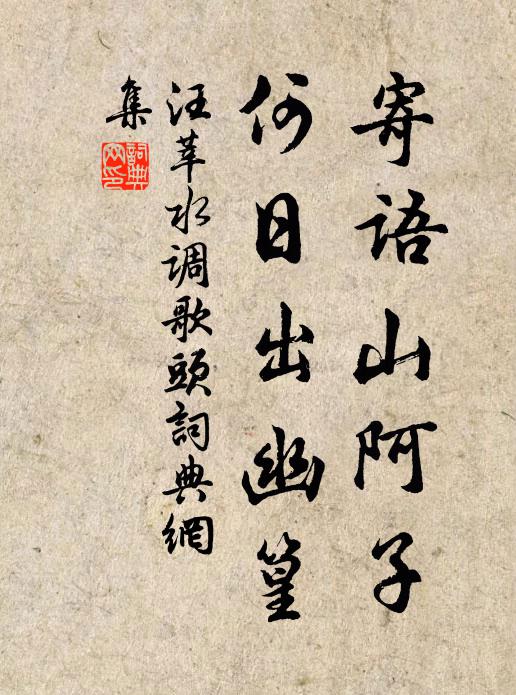 寄语山阿子
何日出幽篁
汪莘水调歌头詞典網
集
詞典网印